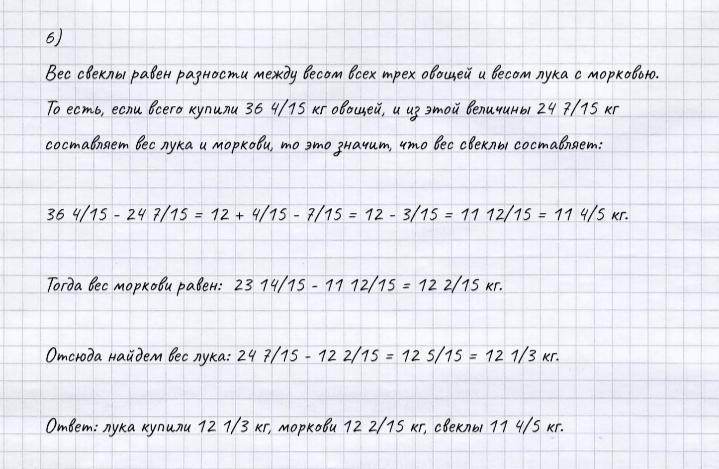 6)
Вес свеклы равен разности между весом всех трех овощей и весом лука с морковью.
То есть, если всего купили 36 4/15 кг овощей, и из этой величины 24 7/15 кг
составляет вес лука и моркови, то это значит, что вес свеклы составляет:
36 4/15 - 24 7/15 = 12 + 4/15 - 7/15 = 12 - 3/15 = 11 12/15 = 11 4/5 кг.
Тогда вес моркови равен: 23 14/15 - 11 12/15 = 12 2/15 кг.
Отсюда найдем вес лука: 24 7/15 - 12 2/15 = 12 5/15 = 12 1/3 кг.
Ответ: лука купили 12 1/3 кг, моркови 12 2/15 кг, свеклы 11 4/5 кг.